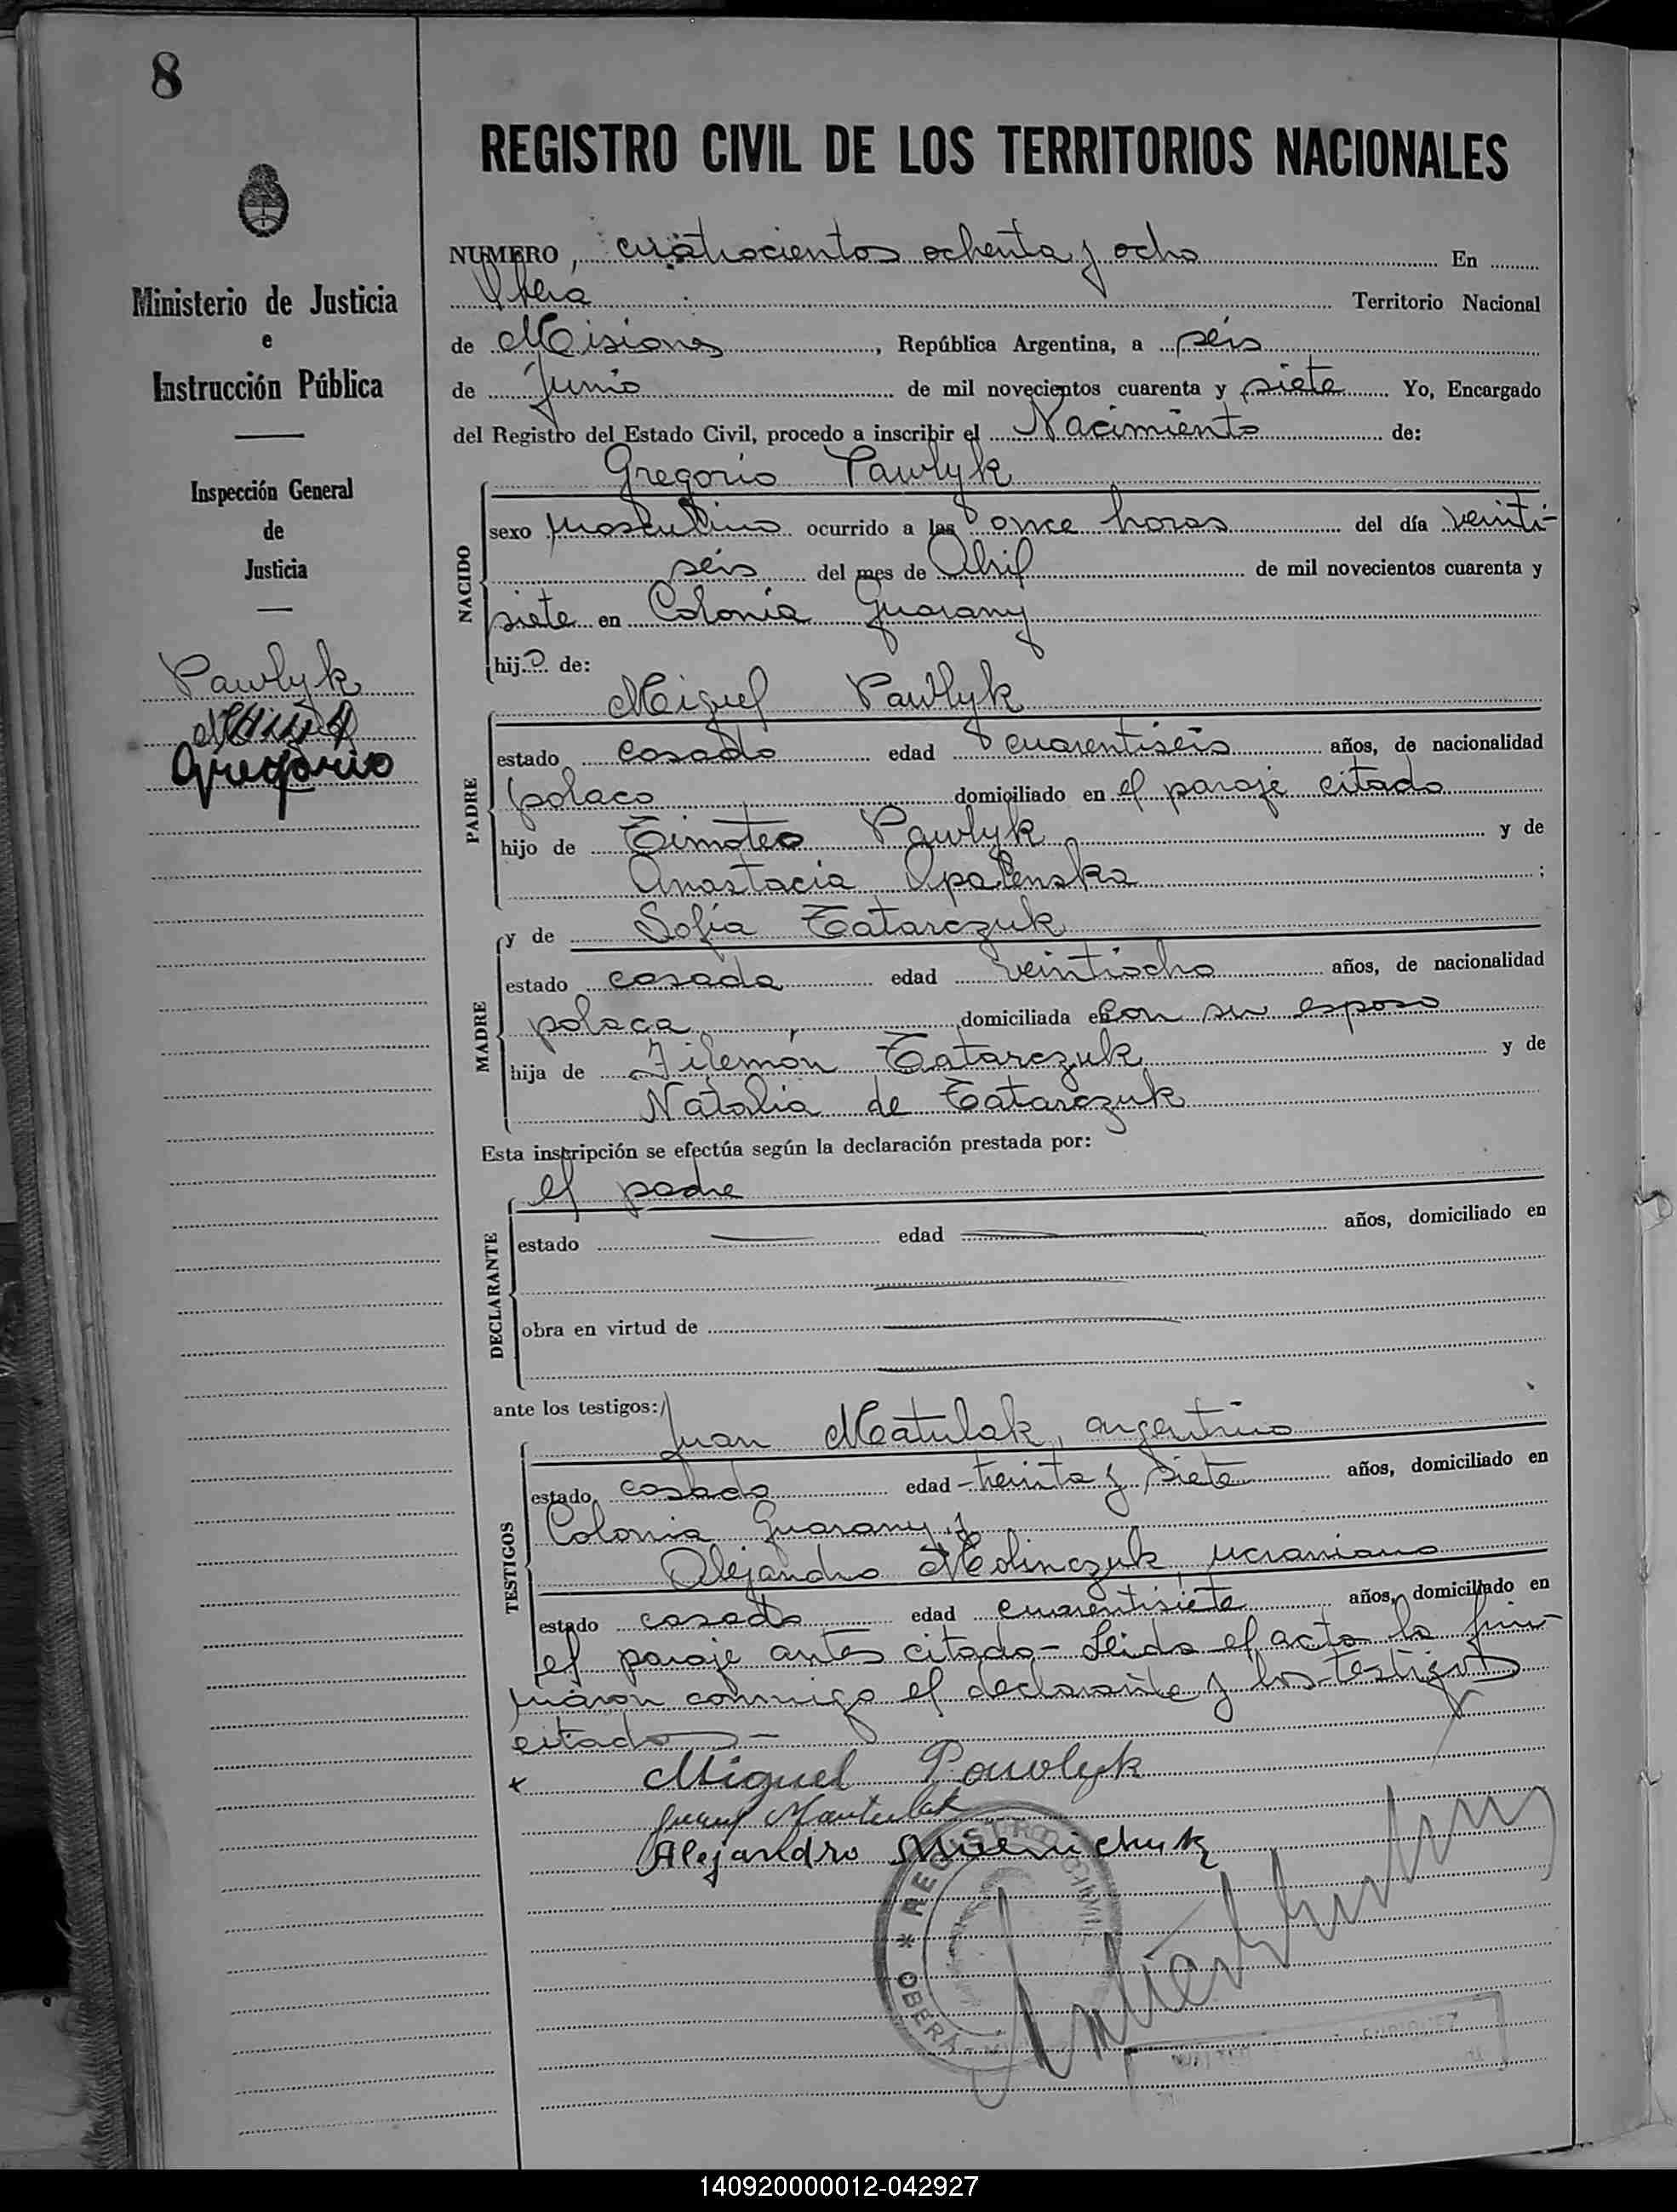 8
REGISTRO CIVIL DE LOS TERRITORIOS NACIONALES
Ministerio de Justicia
e
Instrucción Pública
Inspección General
de
Justicia
Pawlyk
Gregorio
NUMERO, cuatrocientos ochenta y ocho En
Oberá Territorio Nacional
de Misiones, República Argentina, a seis
de Junio de mil novecientos cuarenta y siete Yo, Encargado
del Registro del Estado Civil, procedo a inscribir el Nacimiento de:
NACIDO
Gregorio Pawlyk
sexo masculino ocurrido a las once horas del día veinti-
seis del mes de Abril de mil novecientos cuarenta y
siete en Colonia Guarany
hijo de:
PADRE
Miguel Pawlyk
estado casado edad cuarentiseis años, de nacionalidad
polaco domiciliado en el paraje citado
hijo de Timoteo Pawlyk y de
Anastacia Opalenska ;
MADRE
y de Sofía Tatarczuk
estado casada edad veintiocho años, de nacionalidad
polaca, domiciliada con su esposo
hija de Filemón Tatarczuk y de
Natalia de Tatarczuk
Esta inscripción se efectúa según la declaración prestada por:
DECLARANTE
el padre
estado edad años, domiciliado en
obra en virtud de
ante los testigos:
TESTIGOS
Juan Matulak, argentino
estado casado edad treinta y siete años, domiciliado en
Colonia Guarany y
Alejandro Molinczuk, ucraniano
estado casado edad cuarentisiete años, domiciliado en
el paraje antes citado- Leido el acta la fir-
maron conmigo el declarante y los testigos
citados-
x Miguel Pawlyk
Alejandro
REGISTRO CIVIL
* OBERÁ -
140920000012-042927